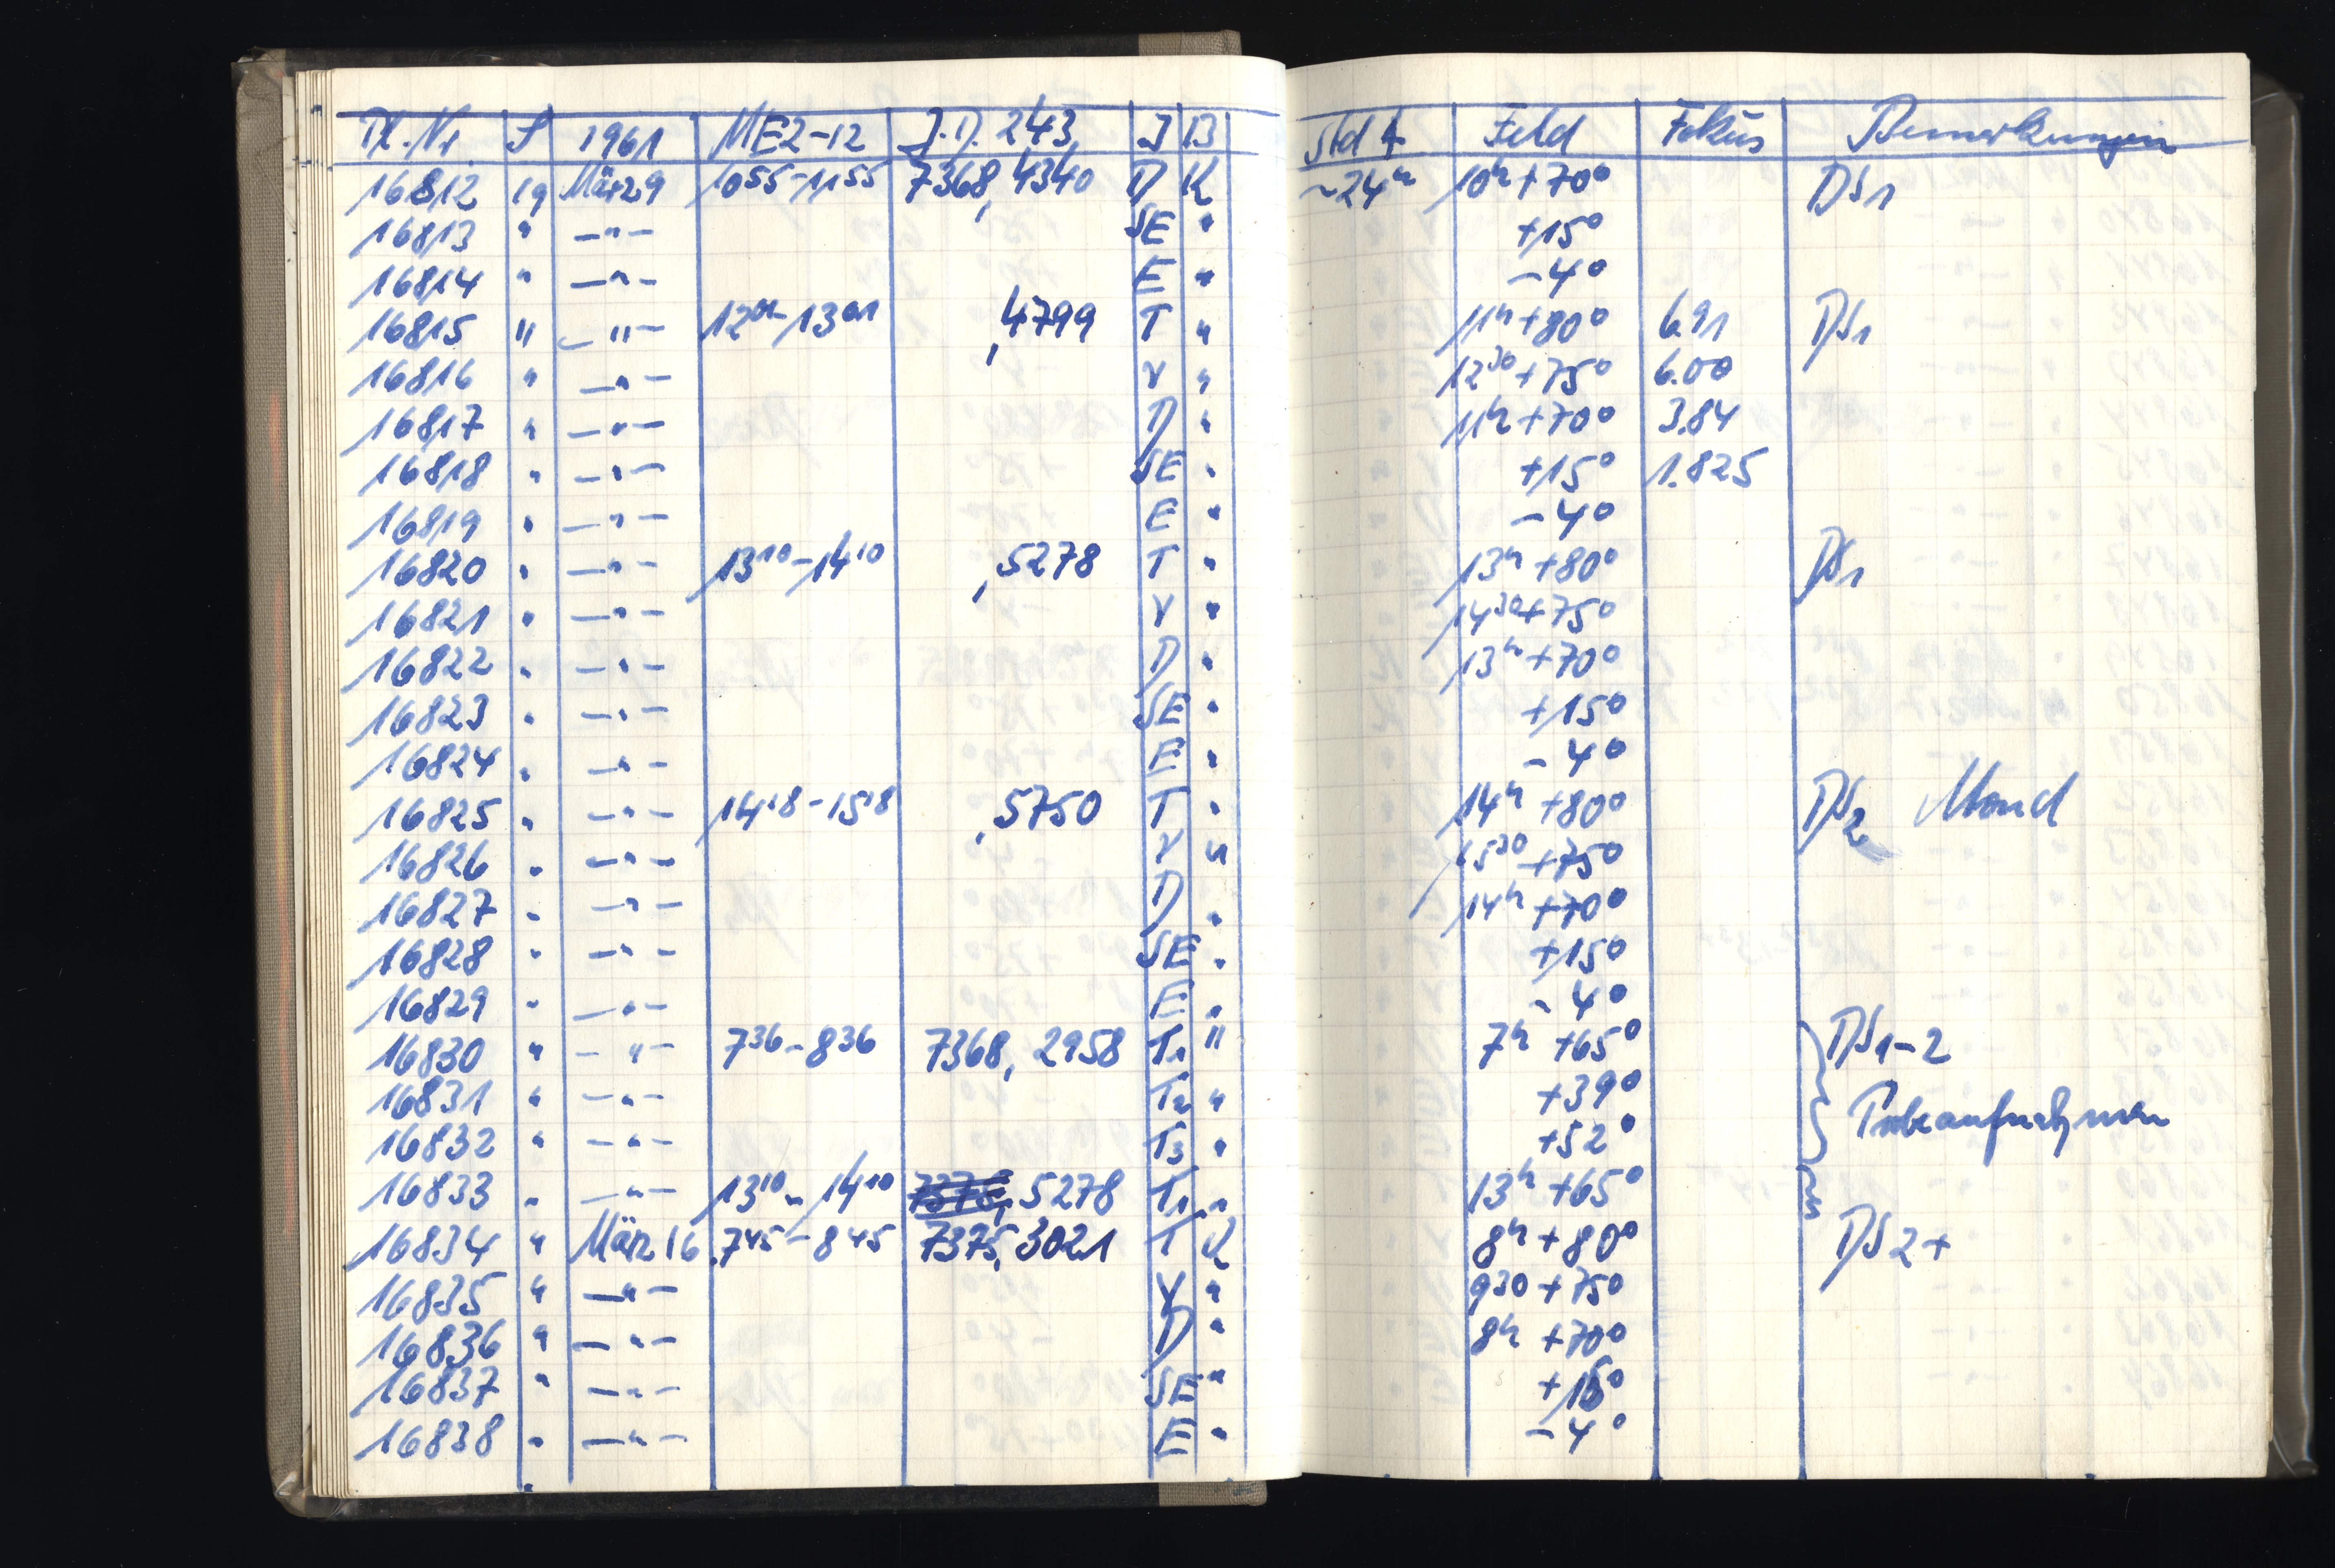 Pl. Nr. S 1961 MEZ-12 J.D. 243 J B Std ∢ Feld Fokus Bemerkungen
16812 19 März 9 10⁵⁵-11⁵⁵ 7368,4340 D K ~24ʰ 10ʰ+70° DS1
16813 " —"— SE " +15°
16814 " —"— E " -4°
16815 " —"— 12⁰¹-13⁰¹ ,4799 T " 11ʰ+80° 6.91 DS1
16816 " —"— V " 12³⁰+75° 6.00
16817 " —"— D " 11ʰ+70° 3.84
16818 " —"— SE " +15° 1.825
16819 " —"— E " -4°
16820 " —"— 13¹⁰-14¹⁰ ,5278 T " 13ʰ+80° DS1
16821 " —"— V " 14³⁰+75°
16822 " —"— D " 13ʰ+70°
16823 " —"— SE " +15°
16824 " —"— E " -4°
16825 " —"— 14¹⁸-15¹⁸ ,5750 T " 14ʰ+80° DS2 Mond
16826 " —"— V " 15³⁰+75°
16827 " —"— D " 14ʰ+70°
16828 " —"— SE " +15°
16829 " —"— E " -4°
16830 " —"— 7³⁶-8³⁶ 7368,2958 T1 " 7ʰ+65° DS1-2
16831 " —"— T2 " +39° Probeaufnahmen
16832 " —"— T3 " +52°
16833 " —"— 13¹⁰-14¹⁰ ,5278 T1 " 13ʰ+65° "
16834 " März 16 7⁴⁵-8⁴⁵ 7375,3021 T K 8ʰ+80° DS2+
16835 " —"— V " 9³⁰+75°
16836 " —"— D " 8ʰ+70°
16837 " —"— SE " +15°
16838 " —"— E " -4°